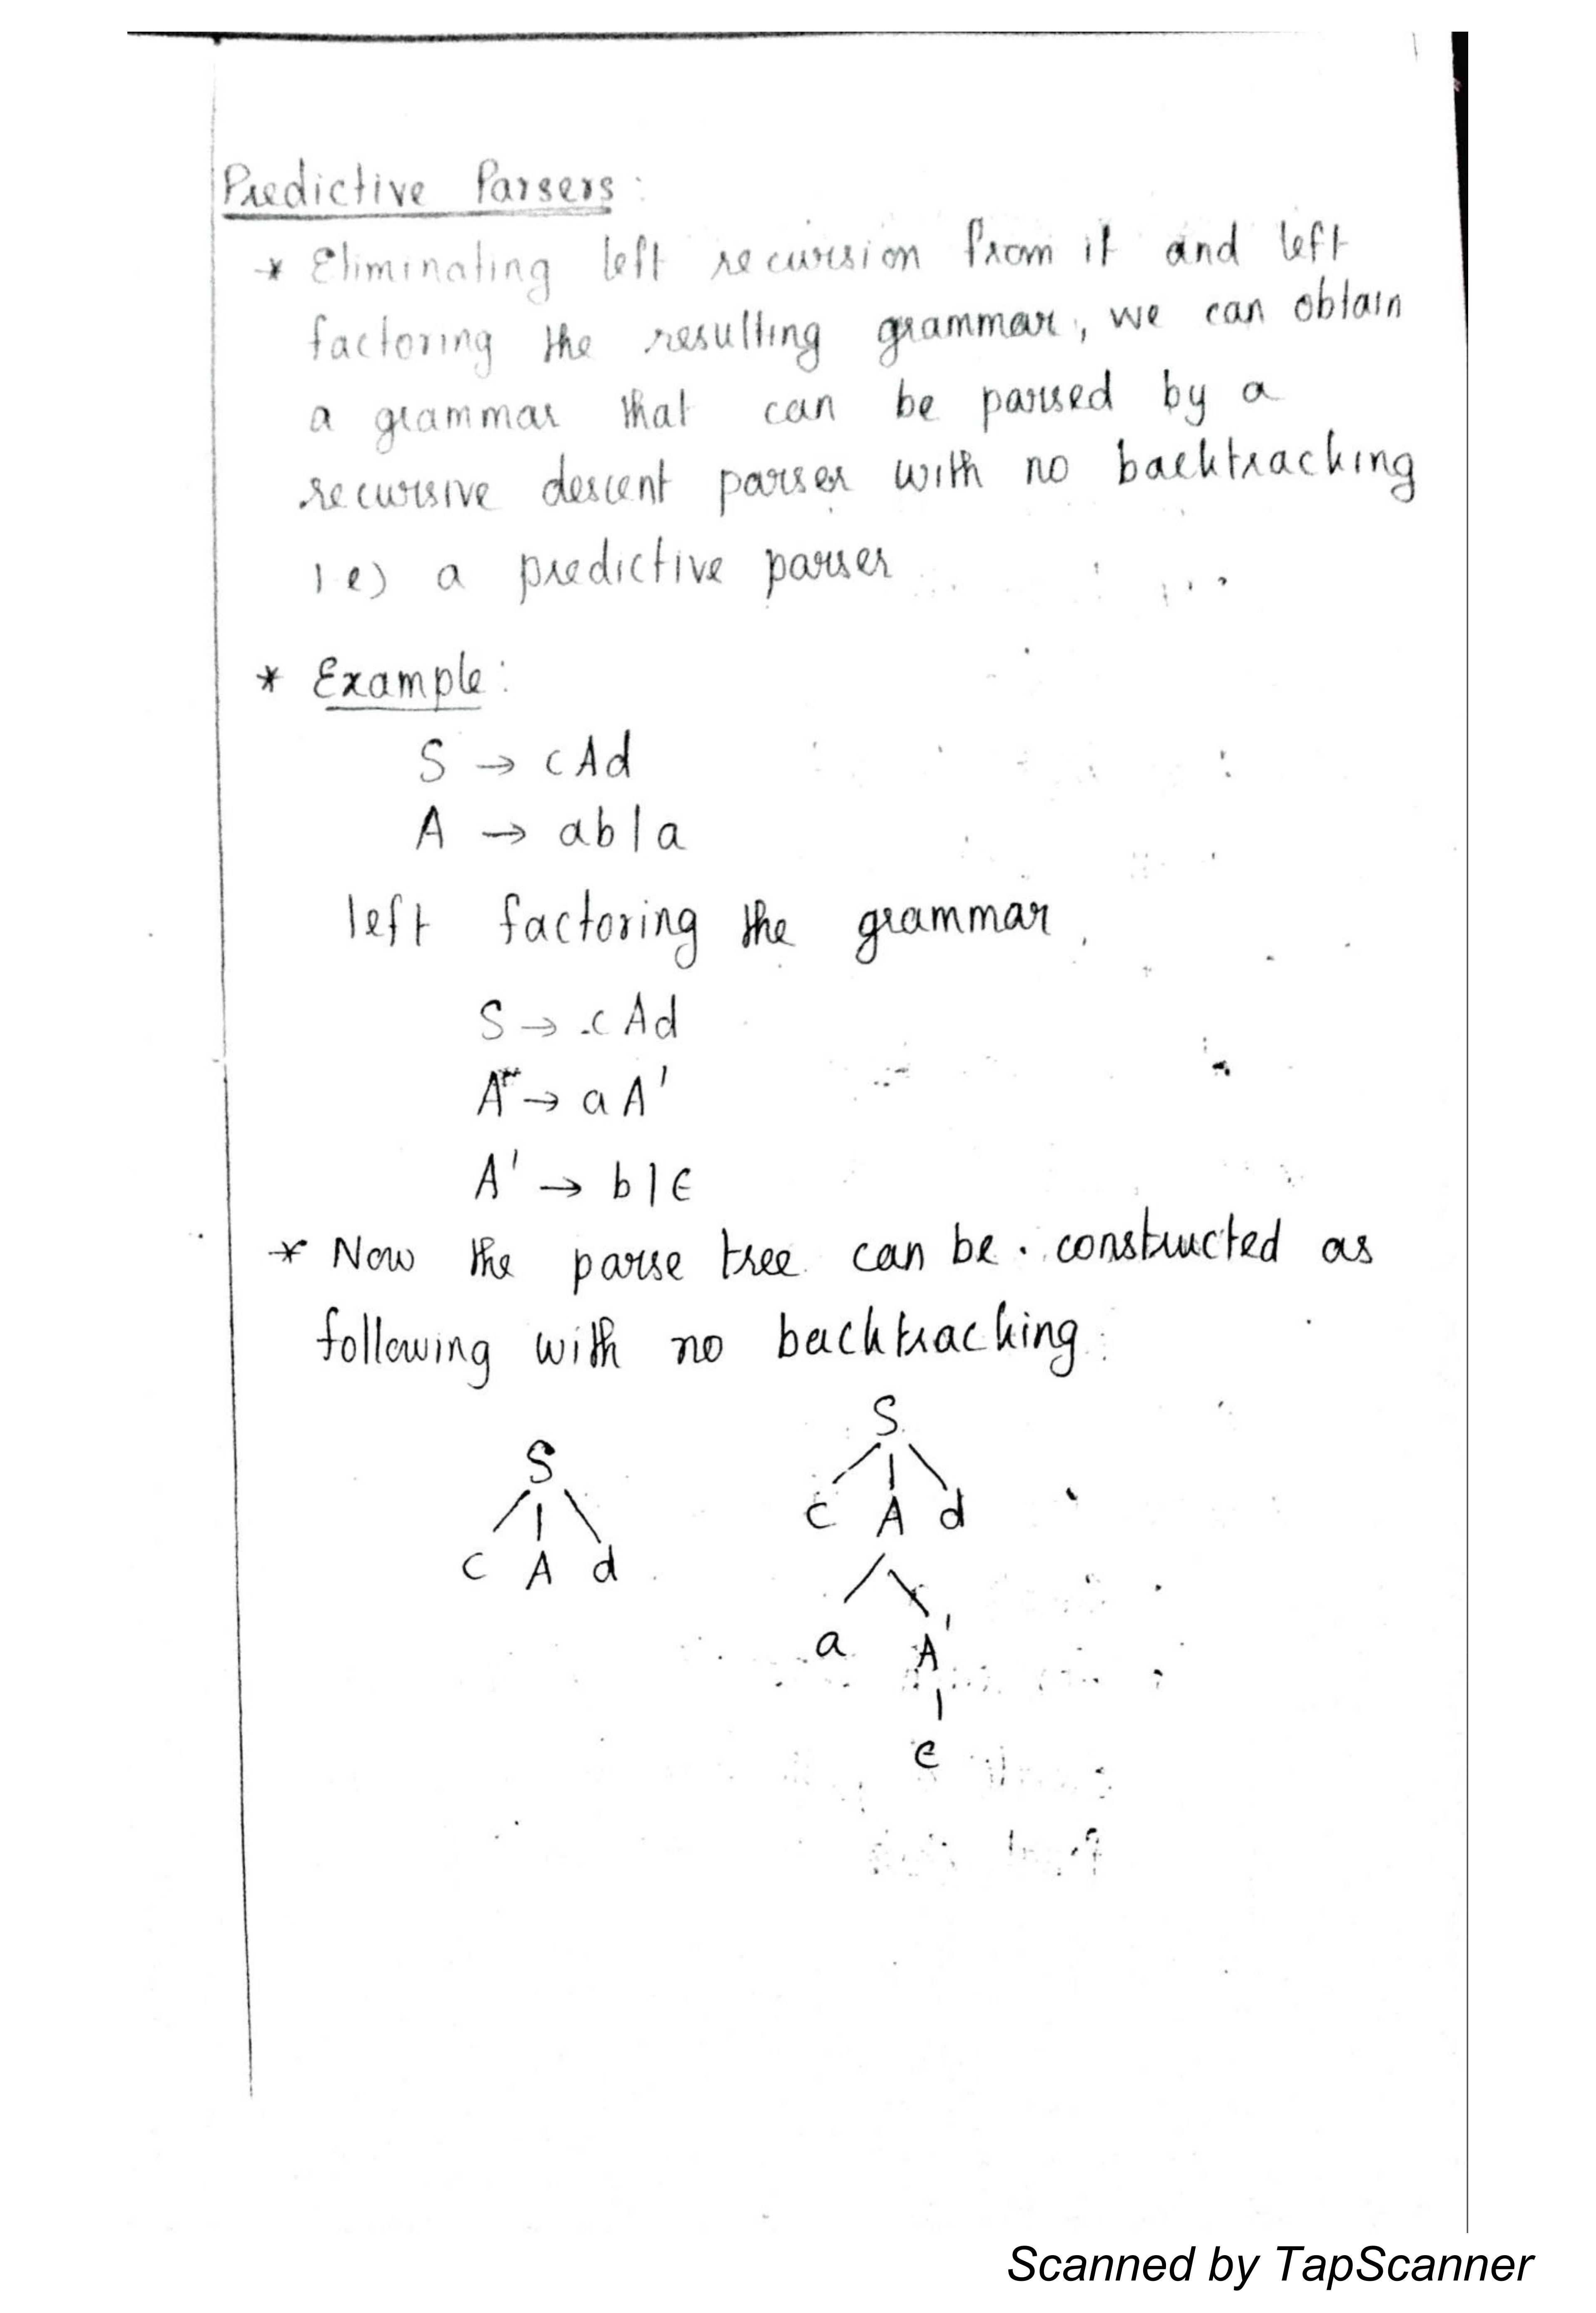 Predictive Parsers:
* Eliminating left recursion from it and left
factoring the resulting grammar, we can obtain
a grammar that can be parsed by a
recursive descent parser with no backtracking
ie) a predictive parser
* Example:
S → cAd
A → ab|a
left factoring the grammar,
S → cAd
A → aA'
A' → b|ϵ
* Now the parse tree can be constructed as
following with no backtracking:
S
c A d
S
c A d
a A'
ϵ
Scanned by TapScanner